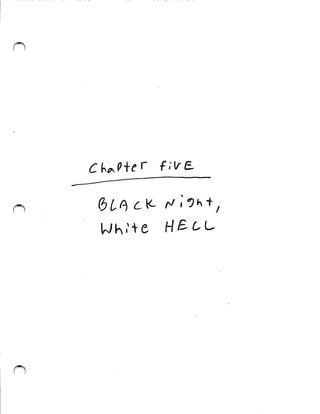 Chapter fivE
BLACK Night,
White HELL